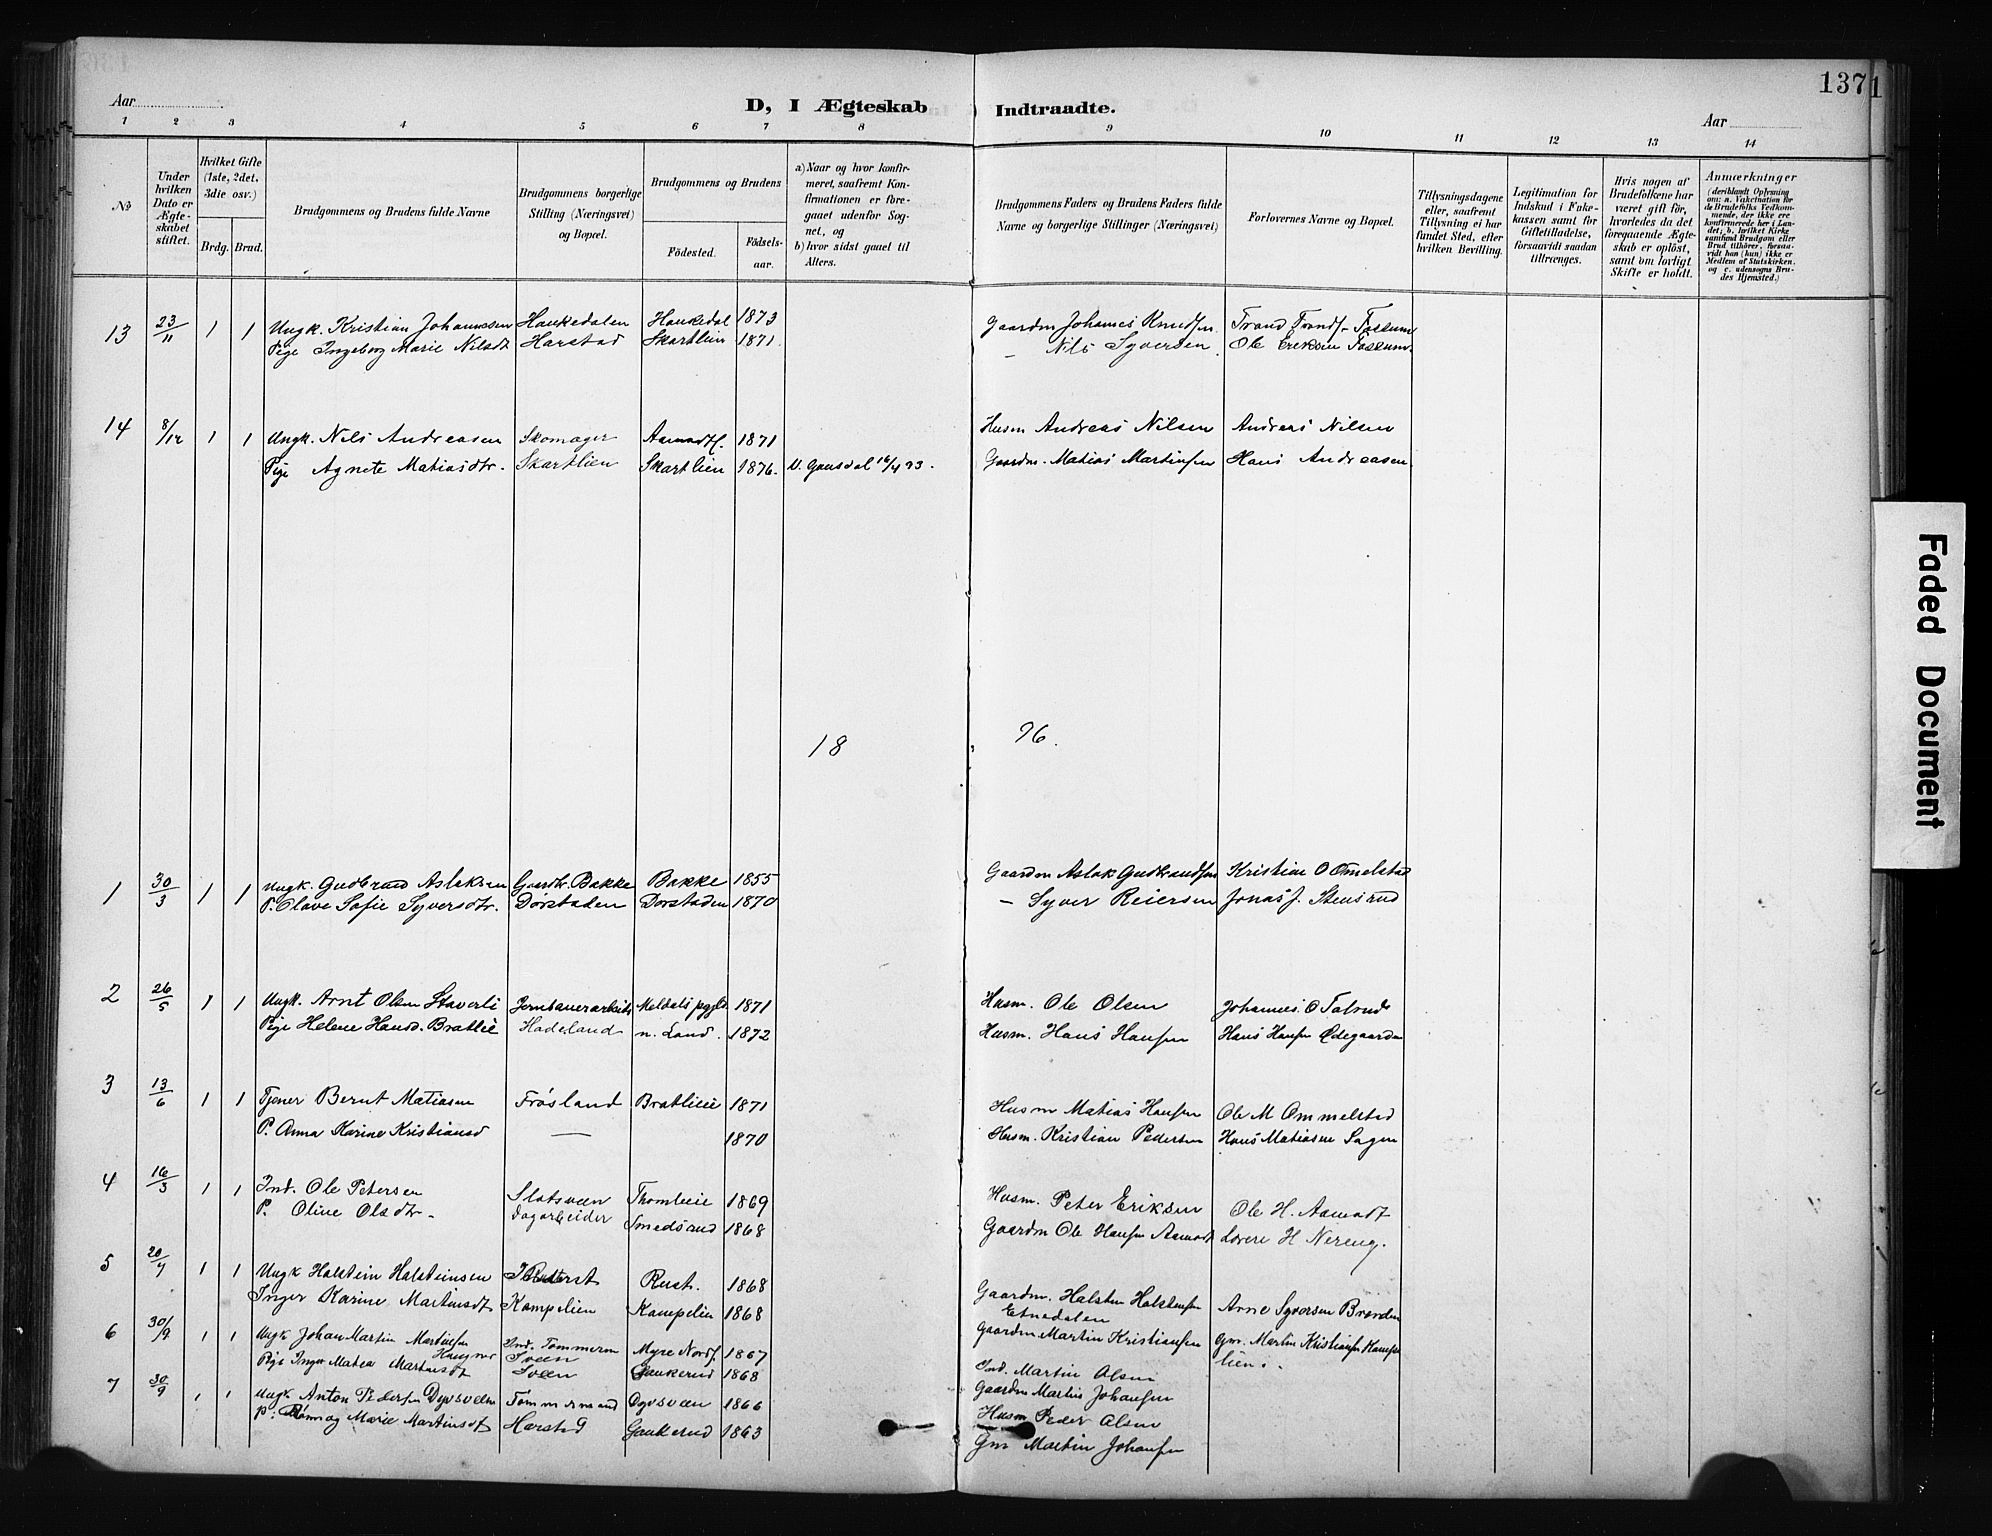 137
Aar
D, I Ægteskab Indtraadte.
Aar
1 2 3 4 5 6 7 8 9 10 11 12 13 14
№
Under hvilken Dato er Ægteskabet stiftet.
Hvilket Gifte (1ste, 2det, 3die osv.)
Brdg. Brud.
Brudgommens og Brudens fulde Navne
Brudgommens borgerlige Stilling (Næringsvei) og Bopæl.
Brudgommens og Brudens
Fødested.
Fødselsaar.
a) Naar og hvor konfirmeret, saafremt Konfirmationen er foregaaet udenfor Sognet, og
b) hvor sidst gaaet til Alters.
Brudgommens Faders og Brudens Faders fulde Navne og borgerlige Stillinger (Næringsvei)
Forlovernes Navne og Bopæl.
Tillysningsdagene eller, saafremt Tillysning ei har fundet Sted, efter hvilken Bevilling.
Legitimation for Indskud i Enkekassen samt for Giftetilladelse, forsaavidt saadan tiltrænges.
Hvis nogen af Brudefolkene har været gift før, hvorledes da det foregaaende Ægteskab er opløst, samt om lovligt Skifte er holdt.
Anmærkninger
(deriblandt Oplysning om: a. Vakcination for de Brudefolks Vedkommende, der ikke ere konfirmerede her i Landet; b. hvilket Kirkesamfund Brudgom eller Brud tilhører, forsaavidt han (hun) ikke er Medlem af Statskirken, og c. udensogns Brudes Hjemsted.)
13 23/11 1 1 Ungk. Kristian Johannessen Haukedalen Haukedal 1873 Gaardm Johannes Knudsen Trond Tronds. Fossum
Pige Ingeborg Marie Nilsdt Harstad Skartlien 1871. – Nils Syversen Ole Eriksen Fossum
14 8/12 1 1 Ungk. Nils Andreasen Skomager Aamodt 1871 Husm Andreas Nilsen Andreas Nilsen
Pige Agnete Matiasdtr. Skartlien Skartlien 1876. V. Gausdal 16/4 93. Gaardm. Matias Martinsen Hans Andreasen
18 96.
1 30/3 1 1 Ungk. Gudbrand Aslaksen Gaardbr. Bakke Bakke 1855 Gaardm Aslak Gudbrandsen Kristian O Ommelstad
P. Olave Sofie Syversdtr. Dorstaden Dorstaden 1870 – Syver Reiersen Jonas J. Stensrud
2 26/5 1 1 Ungk. Arnt Olsen Staverli Jernbanearbeid. Meldals pgjld 1871 Husm. Ole Olsen Johannes O
Pige Helene Hansd. Bratlie Hadeland n. Land. 1872 Husm. Hans Hansen Hans Hansen Ødegaarden
3 13/6 1 1 Tjener Bernt Matiasen Frøsland Bratlieie 1871 Husm Matias Hansen Ole M Ommelstad
P. Anna Karine Kristiansd — 1870 Husm. Kristian Pedersen Hans Matiasen Sagen
4 16/3 1 1 Ind. Ole Petersen Slotsveen Thomleie 1869 Husm. Peter Eriksen Ole H. Aamodt
P. Oline Olsdtr. Dagarbeider Smedsrud 1868 Gaardm Ole Hansen Aamodt H Nereng.
5 20/4 1 1 Ungk Halstein Halsteinsen Rust. 1868 Gaardm. Halsten Halstensen Arne Syversen Brenden
Inger Karine Martinsdt Kampelien Kampelien 1868 Etnedalen
6 30/9 1 1 Ungk Johan Martin Martinsen Ind. Tømmerm Myre Nordf. 1867 Gaardm Martin Kristiansen Gm. Martin Kristiansen Kampe
Pige Inger Matea Martinsdt Sveen Gaukerud 1868 Ind. Martin Olsen lien.
7 30/9 1 1 Ungk Anton Pedersen Dyvsveen Tømmermand Dyvsveen 1866 Gaardm Martin Johansen
P. Marie Martinsdt Harstad Gaukerud 1863 Husm Peder Olsen
Gm Martin Johansen
Faded Document